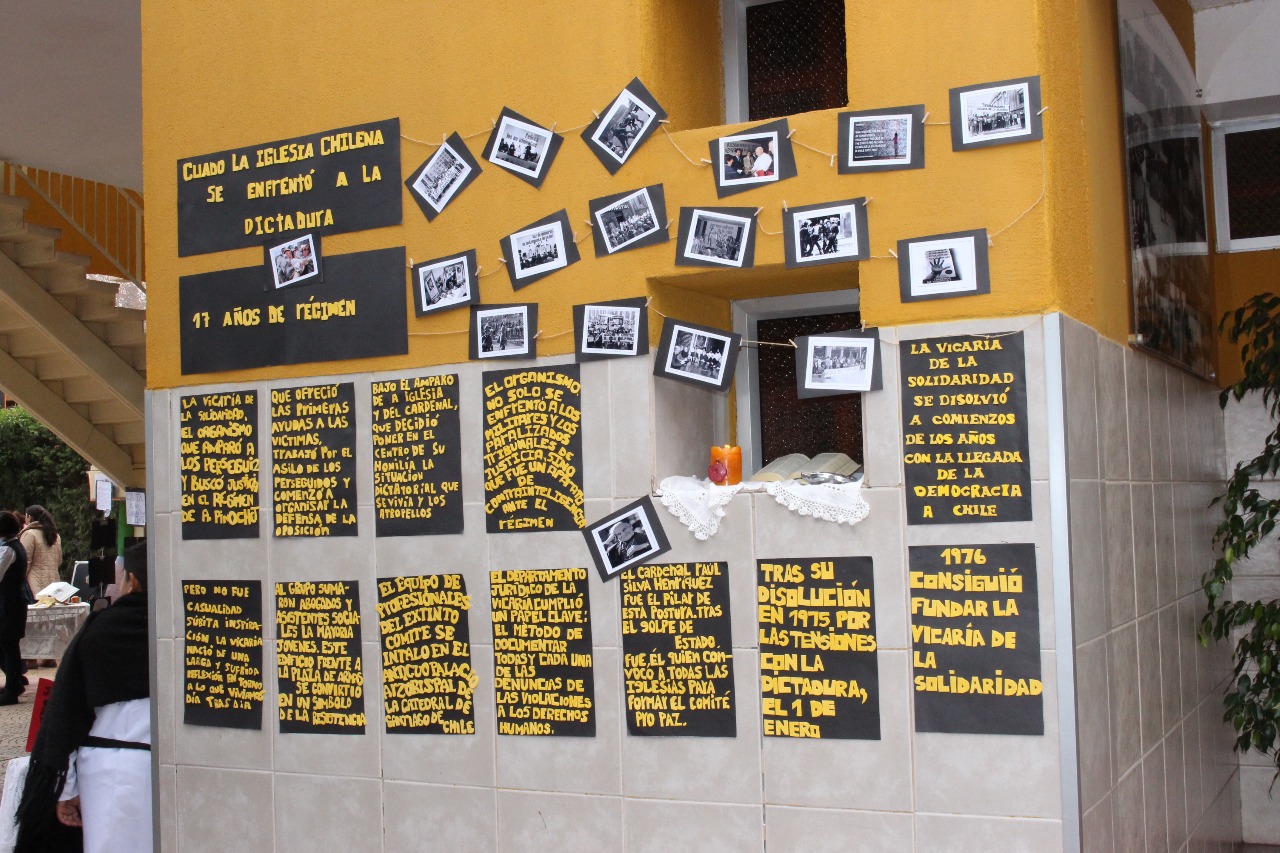 CUADO LA IGLESIA CHILENA
SE ENFRENTÓ A LA
DICTADURA
17 AÑOS DE RÉGIMEN
LA VICARÍA DE
LA SOLIDARIDAD,
EL ORGANISMO
QUE AMPARÓ A
LOS PERSEGUIZ
Y BUSCÓ JUSTICIA
EN EL RÉGIMEN
DE A PINOCHO
QUE OFRECIÓ
LAS PRIMERAS
AYUDAS A LAS
VÍCTIMAS,
TRABAJÓ POR EL
ASILO DE LOS
PERSEGUIDOS Y
COMENZÓ A
ORGANISAR LA
DEFENSA DE LA
OPOSICIÓN
BAJO EL AMPARO
DE A IGLESIA
Y DEL CARDENAL,
QUE DECIDIÓ
PONER EN EL
CENTRO DE SU
HOMILÍA LA
SITUACION
DICTATORIAL QUE
SE VIVIA Y LOS
ATROPELLOS
EL ORGANISMO
NO SOLO SE
ENFRENTÓ A LOS
MILITARES Y LOS
PARALIZADOS
TRIBUNALES DE
JUSTICIA, SINO
QUE FUE UN APARATO
DE
CONTRAINTELIGENCIA
ANTE EL
RÉGIMEN
LA VICARÍA
DE LA
SOLIDARIDAD
SE DISOLVIÓ
A COMIENZOS
DE LOS AÑOS
CON LA LLEGADA
DE LA
DEMOCRACIA
A CHILE
PERO NO FUE
CASUALIDAD
SÚBITA INSPIRA-
CIÓN, LA VICARIA
NACIÓ DE UNA
LARGA Y SUFRIDA
REFLEXIÓN EN TORNO
A LO QUE VIVÍAMOS
DÍA TRAS DÍA
AL GRUPO SUMA-
RÓN ABOGADOS Y
ASISTENTES SOCIA-
LES LA MAYORIA
JOVENES. ESTE
EDIFICIO FRENTE A
LA PLAZA DE ARMAS
SE CONVIRTIÓ
EN UN SÍMBOLO
DE LA RESISTENCIA
EL EQUIPO DE
PROFESIONALES
DEL EXTINTO
COMITE SE
INTALO EN EL
ANTIGUO PALACIO
ARZOBISPAL DE
LA CATEDRAL DE
SANTIAGO DE CHILE
EL DEPARTAMENTO
JURÍDICO DE LA
VICARÍA CUMPLIÓ
UN PAPEL CLAVE;
EL MÉTODO DE
DOCUMENTAR
TODAS Y CADA UNA
DE LAS
DENUNCIAS DE
LAS VIOLACIONES
A LOS DERECHOS
HUMANOS.
EL CARDENAL RAÚL
SILVA HENRÍQUEZ
FUE EL PILAR DE
ESTA POSTURA. TRAS
EL GOLPE DE
ESTADO,
FUE, ÉL QUIEN CON-
VOCÓ A TODAS LAS
IGLESIAS PAYA
FORMAT EL COMITÉ
PYO PAZ.
TRAS SU
DISOLUCIÓN
EN 1975, POR
LAS TENSIONES
CON LA
DICTADURA,
EL 1 DE
ENERO
1976
CONSIGUIÓ
FUNDAR LA
VICARÍA DE
LA
SOLIDARIDAD